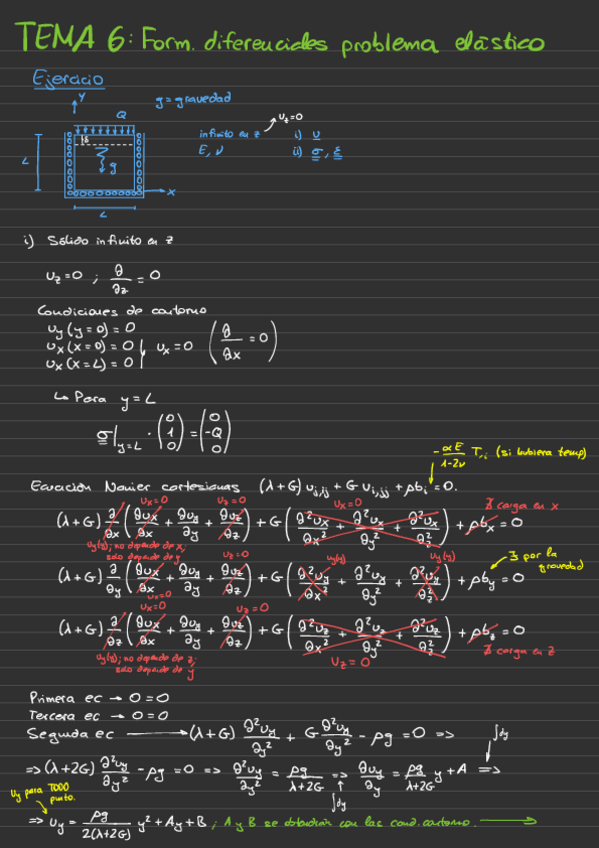 TEMA 6: Form. diferenciales problema elástico
Ejercicio
y
g = gravedad
Q
u_z=0
infinito en z
i) u
E, ν
ii) σ, ε
δ
g
L
x
L
i) Sólido infinito en z
u_z=0 ; ∂/∂z = 0
Condiciones de contorno
u_y (y=0) = 0
u_x (x=0) = 0
u_x (x=L) = 0
u_x = 0 (∂/∂x = 0)
↳ Para y=L
σ|_{y=L} · (0 1 0) = (0 -Q 0)
-αE/(1-2ν) T,i (si hubiera temp)
Ecuación Navier cartesianas (λ+G) u_{j,ij} + G u_{i,jj} + ρb_i = 0.
u_x=0 u_z=0 u_x=0 ∄ carga en x
(λ+G) ∂/∂x (∂u_x/∂x + ∂u_y/∂y + ∂u_z/∂z) + G (∂²u_x/∂x² + ∂²u_x/∂y² + ∂²u_x/∂z²) + ρb_x = 0
u_y(y); no depende de x; solo depende de y
u_z=0 u_y(y) u_y(y) ∃ por la gravedad
(λ+G) ∂/∂y (∂u_x/∂x + ∂u_y/∂y + ∂u_z/∂z) + G (∂²u_y/∂x² + ∂²u_y/∂y² + ∂²u_y/∂z²) + ρb_y = 0
u_x=0
u_x=0 u_z=0
(λ+G) ∂/∂z (∂u_x/∂x + ∂u_y/∂y + ∂u_z/∂z) + G (∂²u_z/∂x² + ∂²u_z/∂y² + ∂²u_z/∂z²) + ρb_z = 0
u_y(y); no depende de z; solo depende de y
u_z=0 ∄ carga en z
Primera ec → 0=0
Tercera ec → 0=0
Segunda ec → (λ+G) ∂²u_y/∂y² + G ∂²u_y/∂y² - ρg = 0 =>
∫dy
=> (λ+2G) ∂²u_y/∂y² - ρg = 0 => ∂²u_y/∂y² = ρg/(λ+2G) => ∂u_y/∂y = ρg/(λ+2G) y + A =>
∫dy
u_y para TODO punto.
=> u_y = ρg/(2(λ+2G)) y² + Ay + B ; A y B se obtendrán con las cond. contorno. →